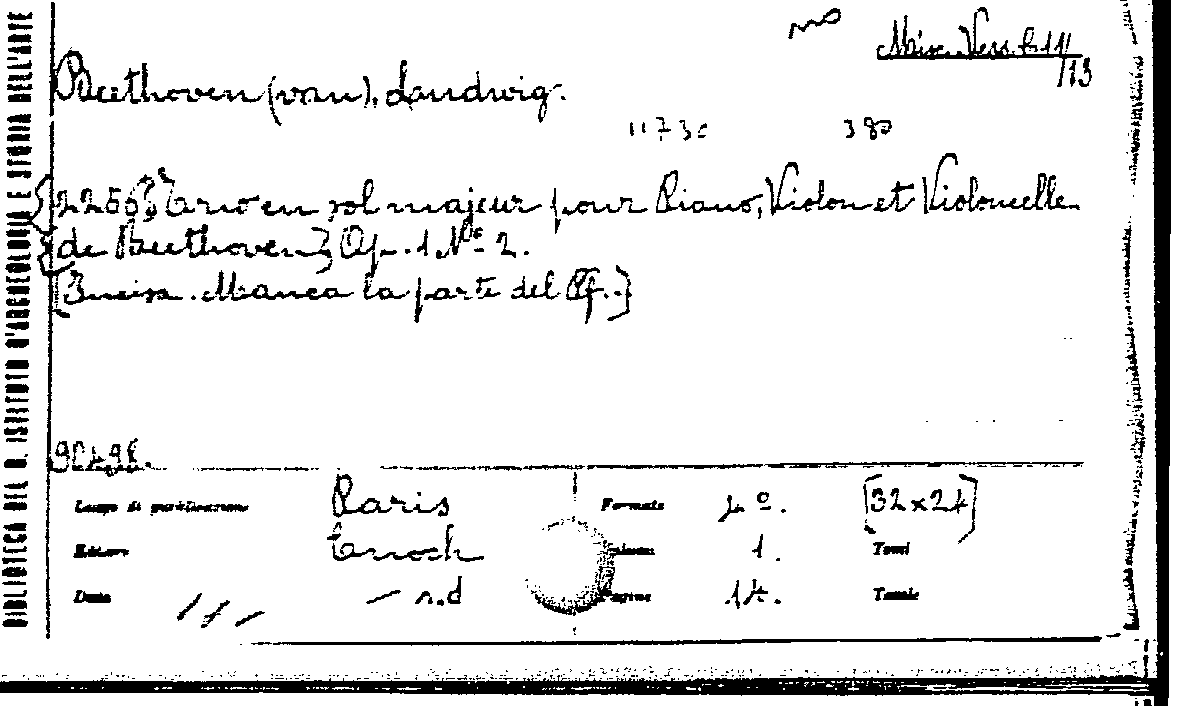 BIBLIOTECA DEL R. ISTITUTO D'ARCHEOLOGIA E STORIA DELL'ARTE
mo
Misc. Vess. b. 11/
/13
Beethoven (van), Ludwig.
11730 380
Trio en sol majeur pour Piano, Violon et Violoncelle
de Beethoven} Op. 1 No. 2.
Manca la parte del Pf.]
90498.
Luogo di pubblicazione Paris Formato 4º. [32x24]
Editore Enoch Volumi 1. Tomi
Data n.d Pagine 14. Tavole